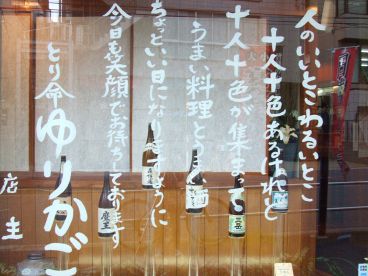 人のいいとこわるいとこ
十人十色あるけれど
十人十色が集まって
うまい料理とうまい酒
ちょっといい日になりますように
今日も笑顔でお待ちしております
とり命ゆりかご
店主
魔王
三岳